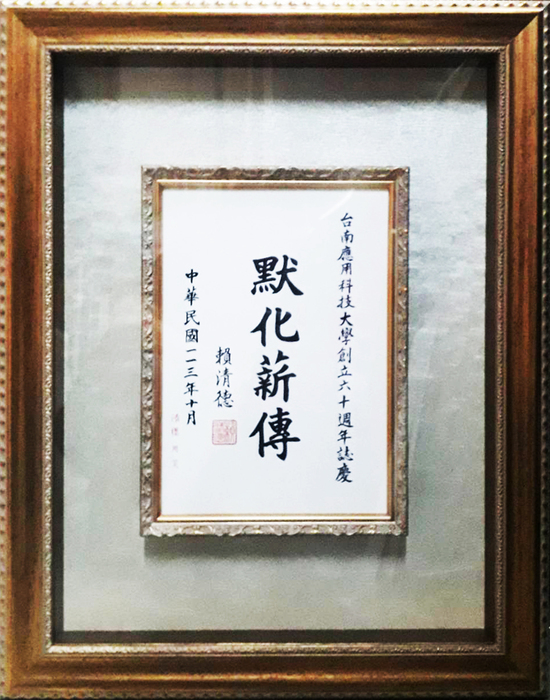 台南應用科技大學創立六十週年誌慶
默化薪傳
賴清德
中華民國一一三年十月